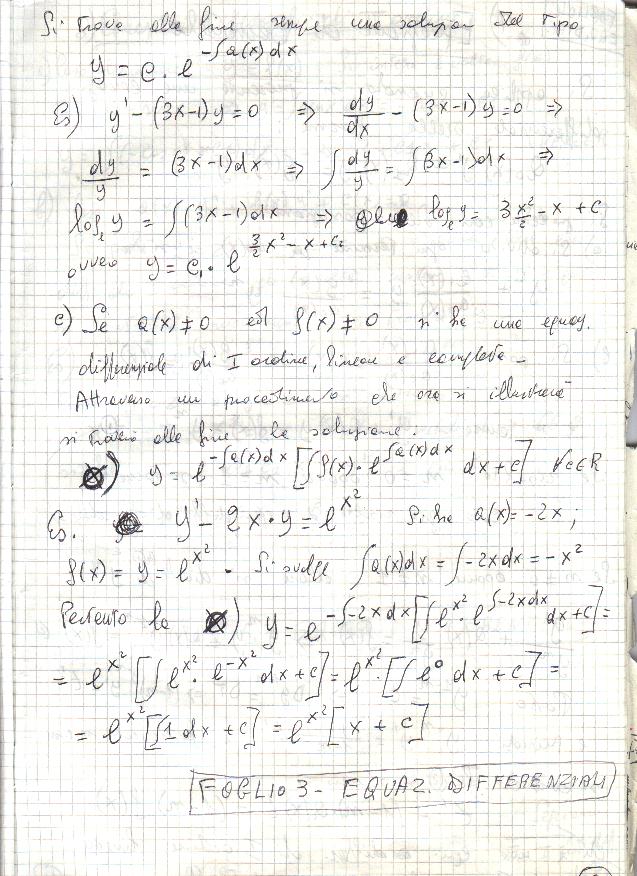 Si trova alla fine sempre una soluzion del tipo
y = c · e^{-∫a(x)dx}
Es) y' - (3x-1)y = 0 => dy/dx - (3x-1)y = 0 =>
dy/y = (3x-1)dx => ∫dy/y = ∫(3x-1)dx =>
log_e y = ∫(3x-1)dx => log_e y = 3x²/2 - x + c
ovvero y = c₁ · e^{3/2 x² - x + c₂}
c) Se a(x) ≠ 0 ed f(x) ≠ 0 si ha una equaz.
differenziale di I ordine, lineare e completa -
Attraverso un procedimento che ora si illustrerà
si trova alla fine la soluzione:
⊗) y = e^{-∫a(x)dx} [∫f(x)·e^{∫a(x)dx} dx + c] ∀c∈R
Es. y' - 2x·y = e^{x²} Si ha a(x) = -2x ;
f(x) = y = e^{x²} . Si svolge ∫a(x)dx = ∫-2xdx = -x²
Pertanto la ⊗) y = e^{-∫-2xdx} [∫e^{x²}·e^{∫-2xdx} dx + c] =
= e^{x²} [∫e^{x²}·e^{-x²} dx + c] = e^{x²}·[∫e⁰ dx + c] =
= e^{x²} [∫1 dx + c] = e^{x²} [x + c]
FOGLIO 3 - EQUAZ. DIFFERENZIALI